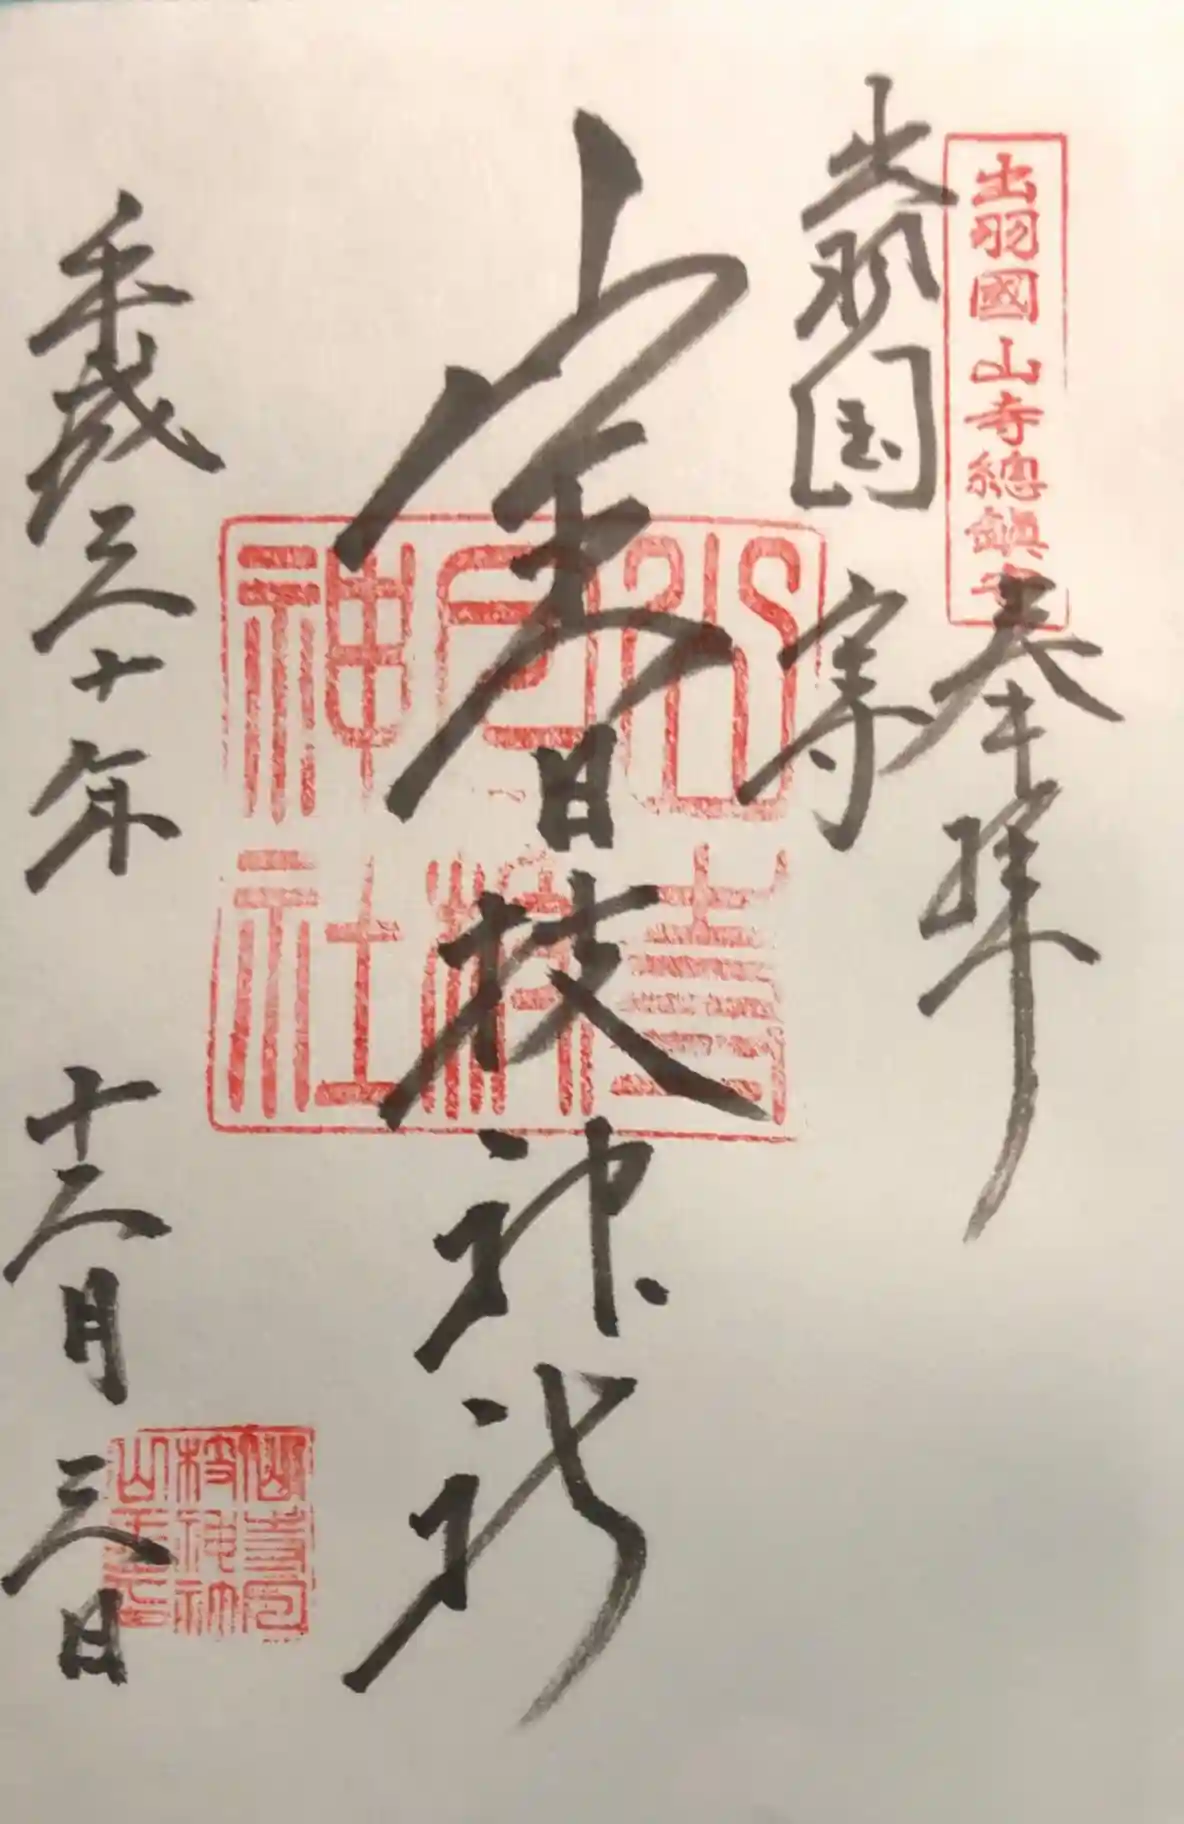 出羽國山寺總鎮守
奉拝
出羽国
日枝神社
山寺
日枝
神社
平成三十年 十二月 三日
山寺日
枝神社
山王